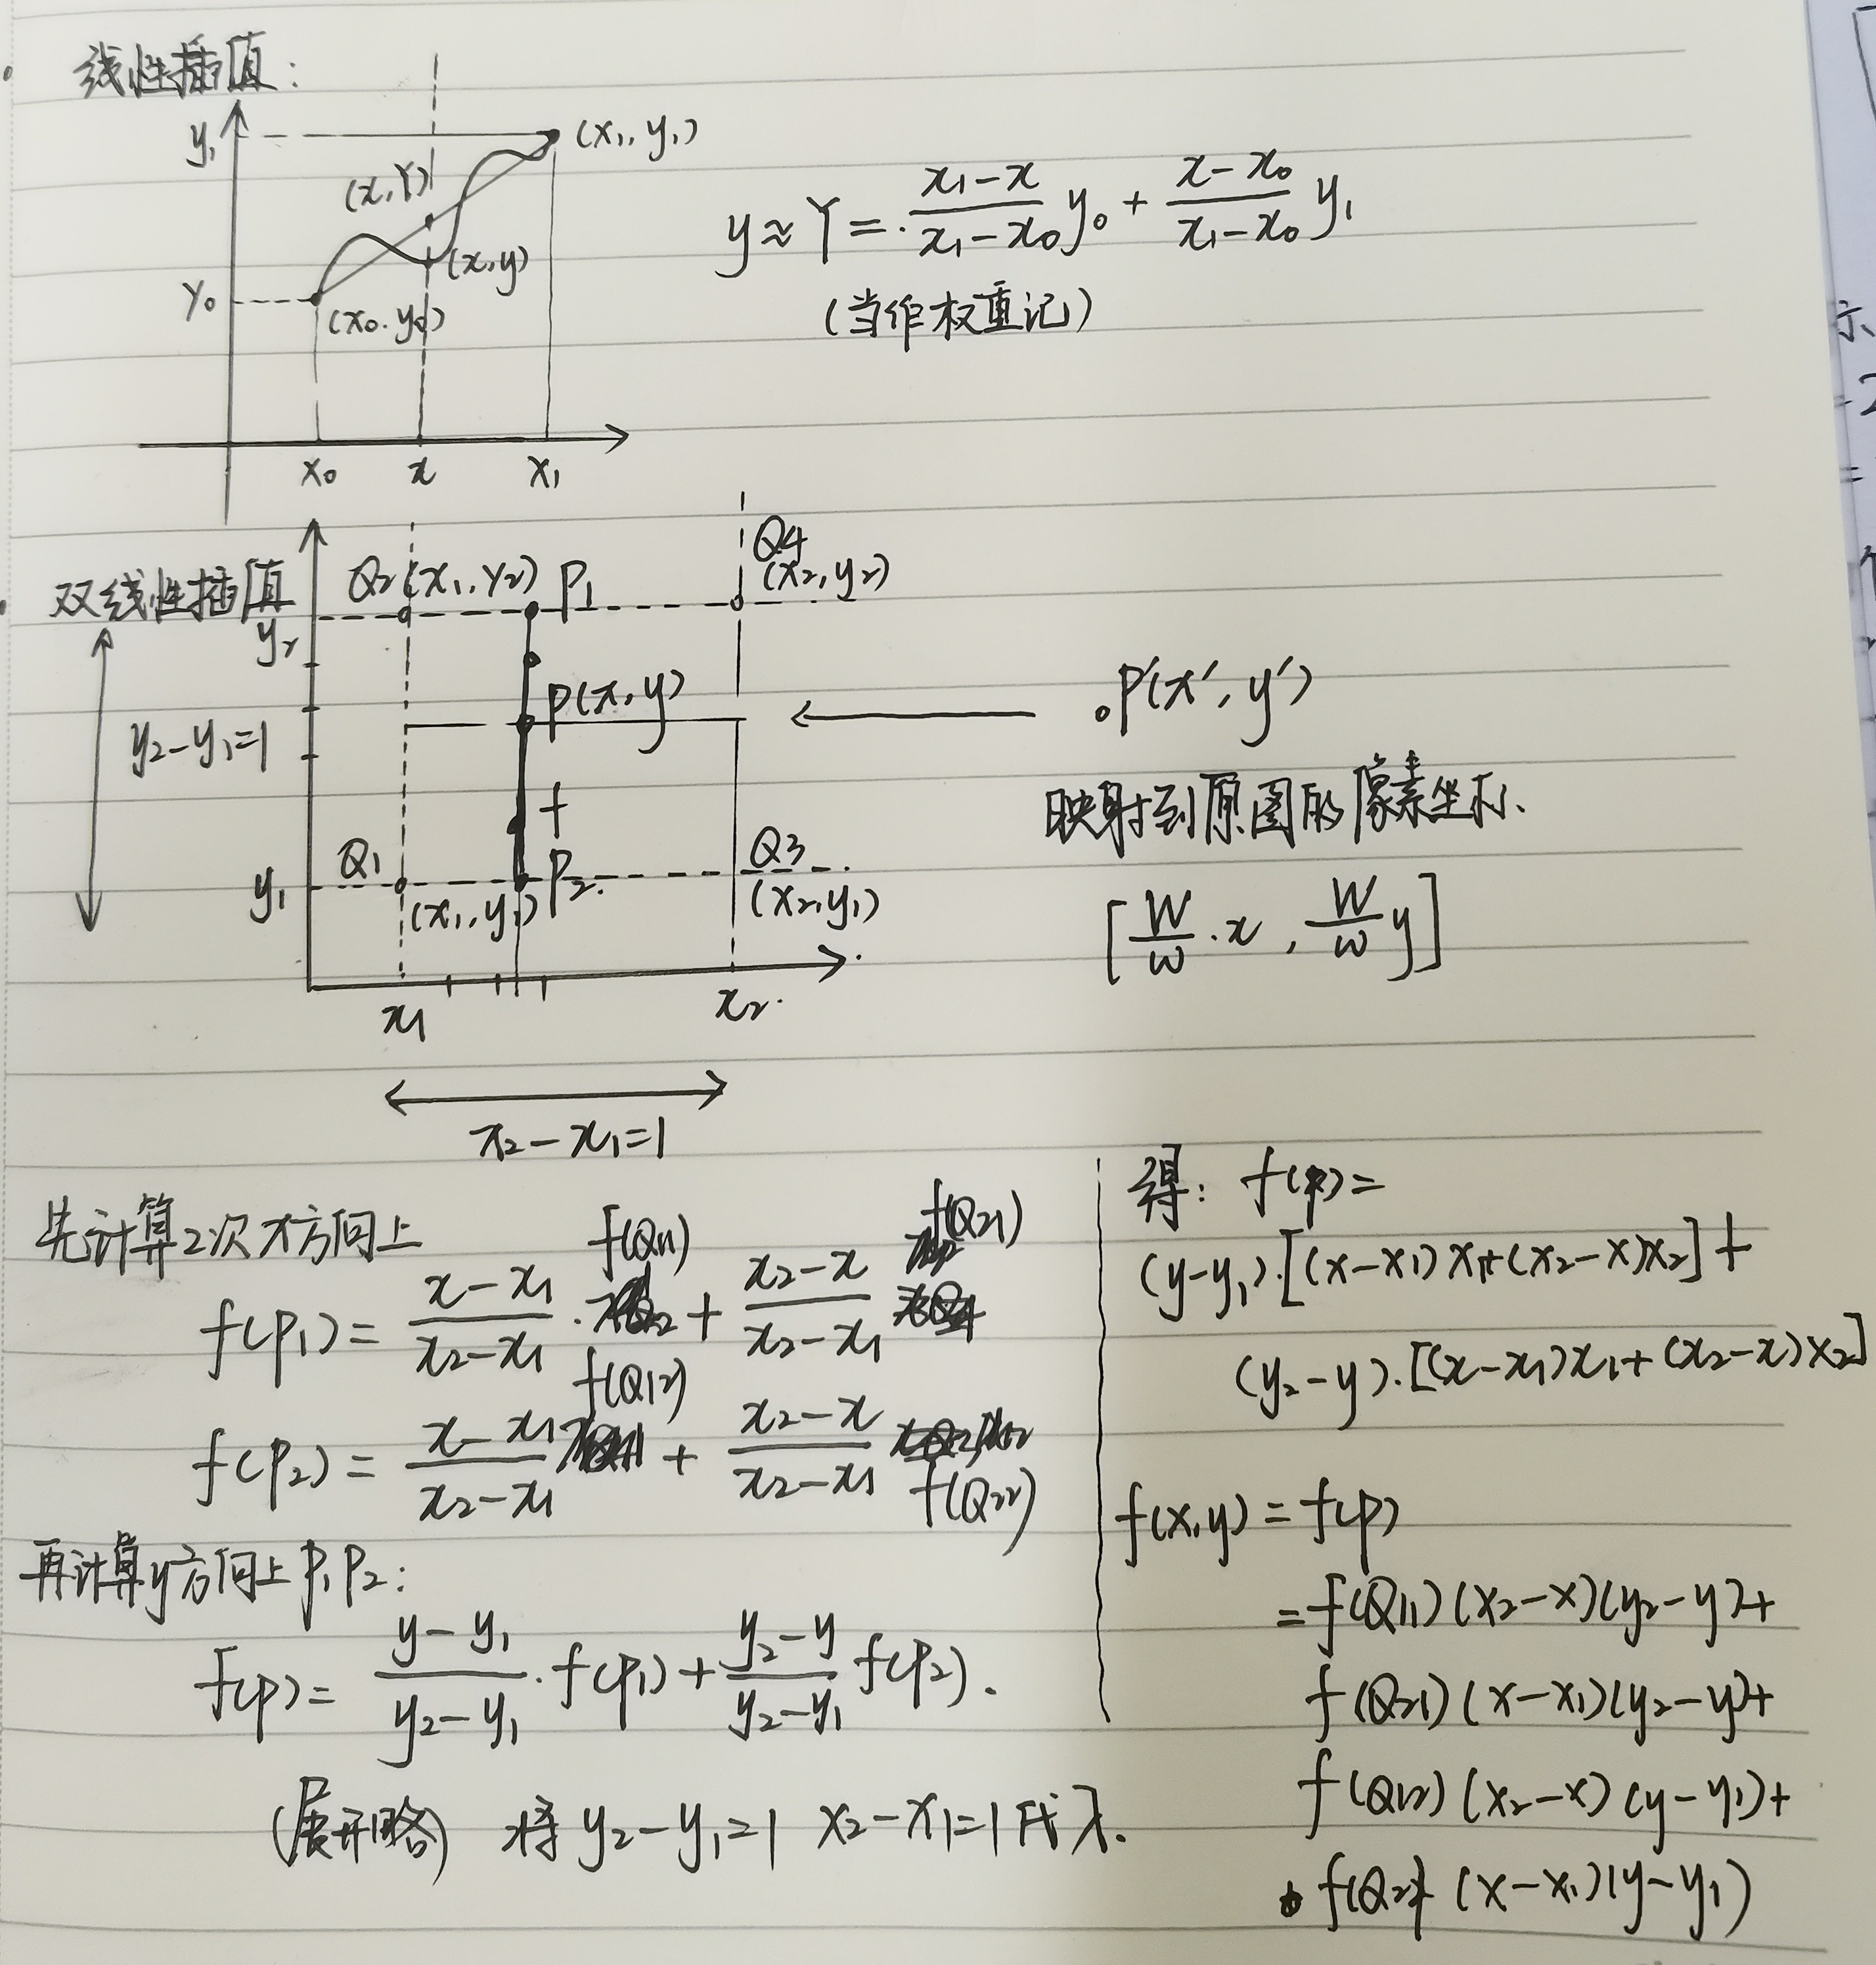 线性插值:
y₁
(x₁, y₁)
(x, Y)
y ≈ Y = (x₁-x)/(x₁-x₀) y₀ + (x-x₀)/(x₁-x₀) y₁
(x, y)
Y₀
(x₀, y₀)
(当作权重记)
x₀ x x₁
双线性插值
Q₂ (x₁, Y₂) P₁
Q4
(x₂, y₂)
y₂
P(x, y)
P'(x', y')
y₂-y₁=1
映射到原图的像素坐标
Q1
P₂
Q3
y₁
(x₁, y₁)
(x₂, y₁)
[W/w · x, W/w y]
x₁ x₂
x₂-x₁=1
先计算2次x方向上
f(P₁) = (x-x₁)/(x₂-x₁) · f(Q₁₁) + (x₂-x)/(x₂-x₁) f(Q₂₁)
f(P₂) = (x-x₁)/(x₂-x₁) f(Q₁₂) + (x₂-x)/(x₂-x₁) f(Q₂₂)
再计算y方向上P₁P₂:
f(P) = (y-y₁)/(y₂-y₁) · f(P₁) + (y₂-y)/(y₂-y₁) f(P₂).
(展开略) 将 y₂-y₁=1 x₂-x₁=1 代入.
得: f(P)=
(y-y₁)·[(x-x₁)x₁+(x₂-x)x₂] +
(y₂-y)·[(x-x₁)x₁+(x₂-x)x₂]
f(x, y) = f(P)
= f(Q₁₁)(x₂-x)(y₂-y)+
f(Q₂₁)(x-x₁)(y₂-y)+
f(Q₁₂)(x₂-x)(y-y₁)+
f(Q₂₂)(x-x₁)(y-y₁)